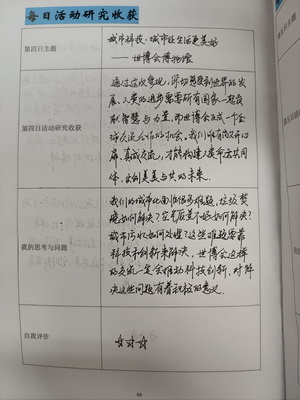 每日活动研究收获
第四日主题
城市科技·城市让生活更美好
——世博会博物馆
第四日活动研究收获
通过这次参观,深切感受到世界的发
展、人类的进步需要所有国家一起获
取智慧与力量,而世博会是一个全
球交流合作的机会。我们以有
席,真诚交流,才能构建人类命运共同
体,实现美美与共的未来。
我的思考与问题
我们的城市化面临 难题,垃圾焚
烧如何解决?空气质量不好如何解决?
城市污水如何处理?这些难题要靠
科技和创新来解决,世博会这样
的交流一定会推动科技创新,对解
决这些问题有着积极的意义。
自我评价
☆☆☆